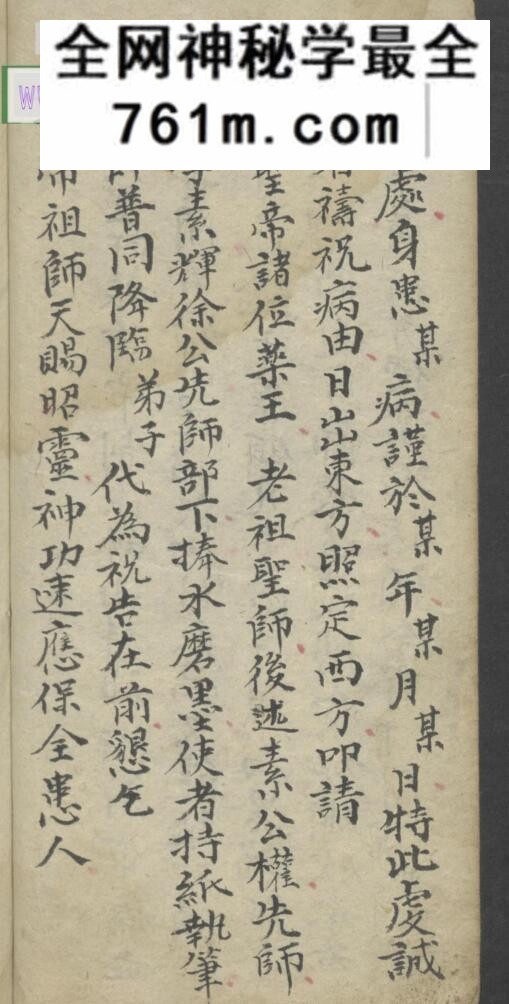 全网神秘学最全
761m.com
W
處身患某病謹於某年某月某日特此虔誠
禱祝病由日出東方照定西方叩請
聖帝諸位藥王 老祖聖師後述素公權先師
素輝徐公先師部下捧水磨墨使者持紙執筆
普同降臨弟子代為祝告在前懇乞
帝祖師天賜昭靈神功速應保全患人